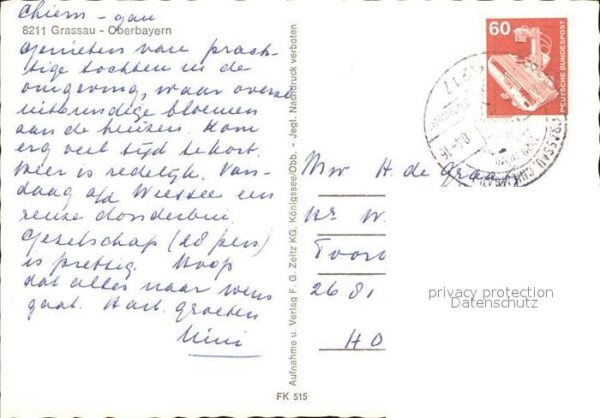 Chiem - gau
8211 Grassau - Oberbayern
Genieten van prach-
tige tochten in de
omgeving, waar overal
uitbundige bloemen
aan de huizen. Kom
erg veel tijd te kort.
Weer is redelijk. Van-
daag a/d Weessee een
reuze donderbui.
Gezelschap (28 pers)
is prettig. Hoop
dat alles naar wens
gaat. Hart. groeten
Mini
Aufnahme u. Verlag F. G. Zeitz KG, Königssee/Obb. - Jegl. Nachdruck verboten
FK 515
60
DEUTSCHE BUNDESPOST
GRASSAU CHIEMGAU
Mw H. de Graaff
Hr W
Toors
2681
HO
privacy protection
Datenschutz